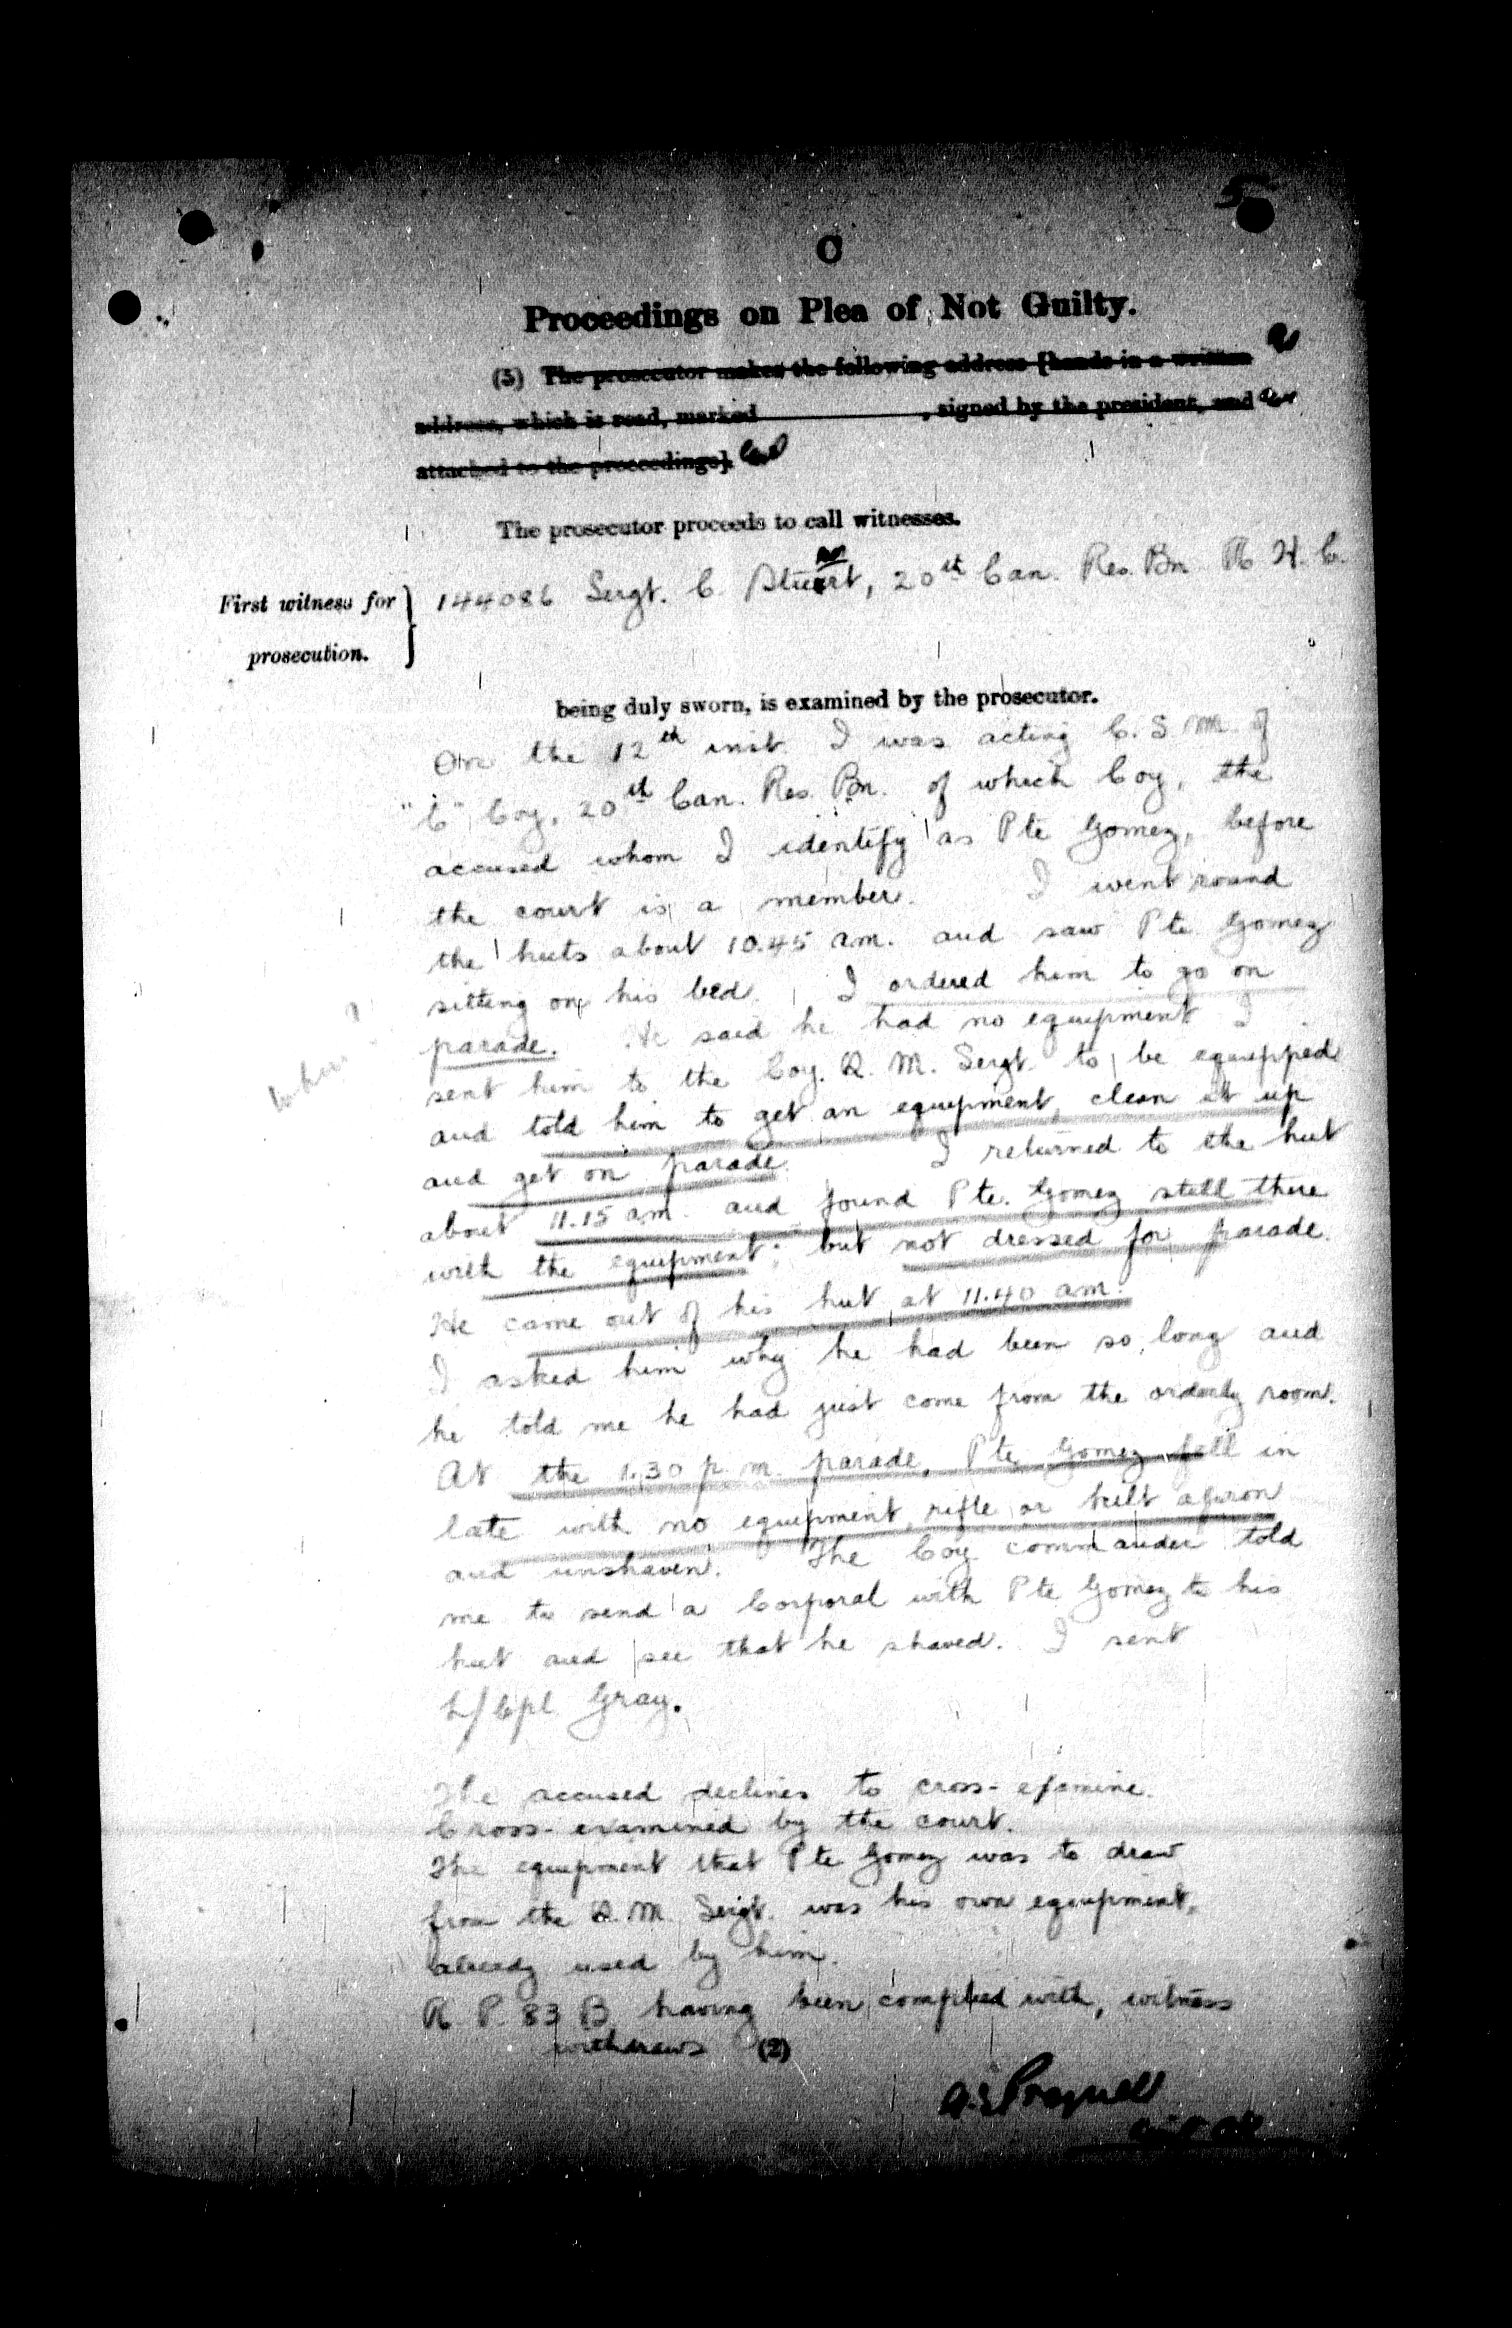 5
C
Proceedings on Plea of Not Guilty.
(5) The prosecutor makes the following address [hands in a written
address, which is read, marked , signed by the president, and
attached to the proceedings].
The prosecutor proceeds to call witnesses.
First witness for
prosecution.
144086 Sergt. C. Stuart, 20th Can. Res. Bn. R. H. C.
being duly sworn, is examined by the prosecutor.
On the 12th inst. I was acting C. S. M. of
"C" Coy, 20th Can. Res. Bn. of which Coy, the
accused whom I identify as Pte Gomez, before
the court is a member. I went round
the huts about 10.45 am. and saw Pte Gomez
sitting on his bed. I ordered him to go on
parade. He said he had no equipment I
sent him to the Coy. Q. M. Sergt. to be equipped
and told him to get an equipment, clean it up
and get on parade. I returned to the hut
about 11.15 am. and found Pte. Gomez still there
with the equipment; but not dressed for parade.
He came out of his hut at 11.40 am.
I asked him why he had been so long and
he told me he had just come from the orderly room.
At the 1.30 p.m. parade, Pte Gomez fell in
late with no equipment, rifle or kilt apron
and unshaven. The Coy commander told
me to send a Corporal with Pte Gomez to his
hut and see that he shaved. I sent
L/Cpl Gray.
when?
The accused declines to cross-examine.
Cross-examined by the court.
The equipment that Pte Gomez was to draw
from the Q. M. Sergt. was his own equipment,
already used by him.
R. P. 83 B having been complied with, witness
withdraws (2)